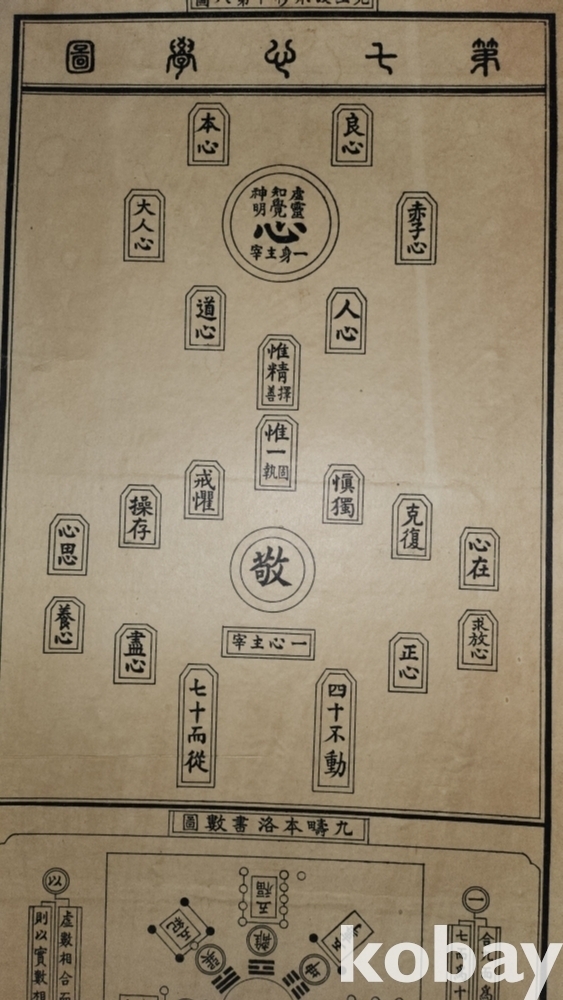 第七心學圖
良心
本心
赤子心
大人心
虛靈
知覺
神明
心
一身主宰
人心
道心
惟精
擇善
惟一
固執
慎獨
戒懼
克復
操存
心在
心思
敬
求放心
養心
正心
盡心
一心主宰
四十不動
七十而從
九疇本洛書數圖
五福
五紀
離
一
以
虛數相合
則以實數相
kobay